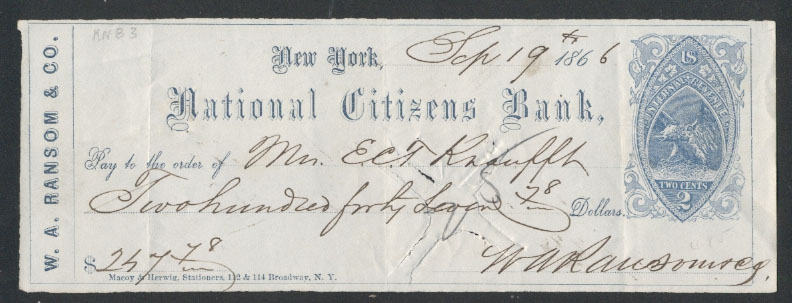 W. A. RANSOM & CO.
New York, Sep 19th 1866
National Citizens Bank,
Pay to the order of Mrs. E.C.T. Knaufft
Two hundred forty Seven 78/ Dollars.
$247 78/
W A Ransom & Co
Macoy & Herwig, Stationers, 112 & 114 Broadway, N. Y.
US
INTERNAL REVENUE
TWO CENTS
2